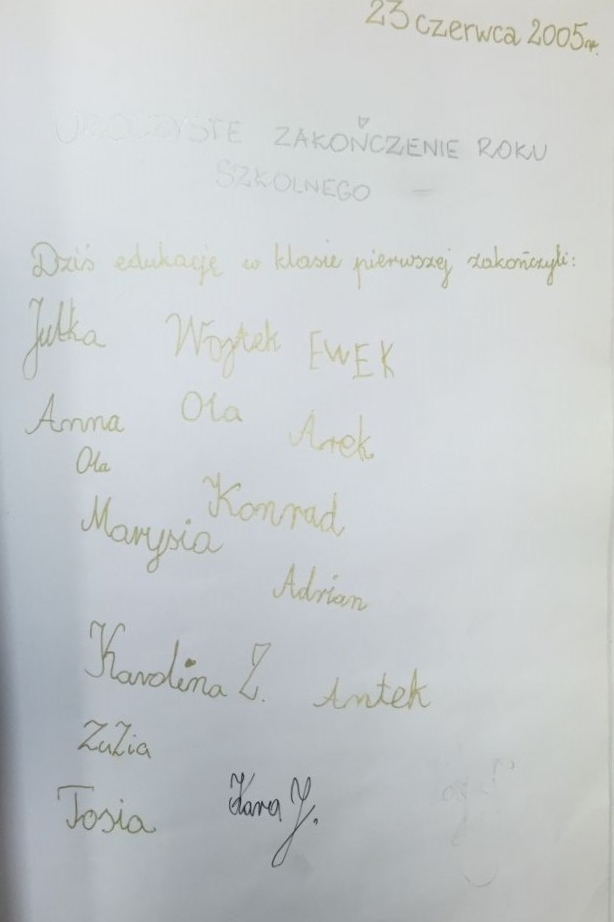 23 czerwca 2005r.
UROCZYSTE ZAKOŃCZENIE ROKU
SZKOLNEGO
Dziś edukację w klasie pierwszej zakończyli:
Julka Wojtek EWEK
Anna Ola Arek
Ola
Konrad
Marysia
Adrian
Karolina Z. Antek
Zuzia
Tosia Klara J.